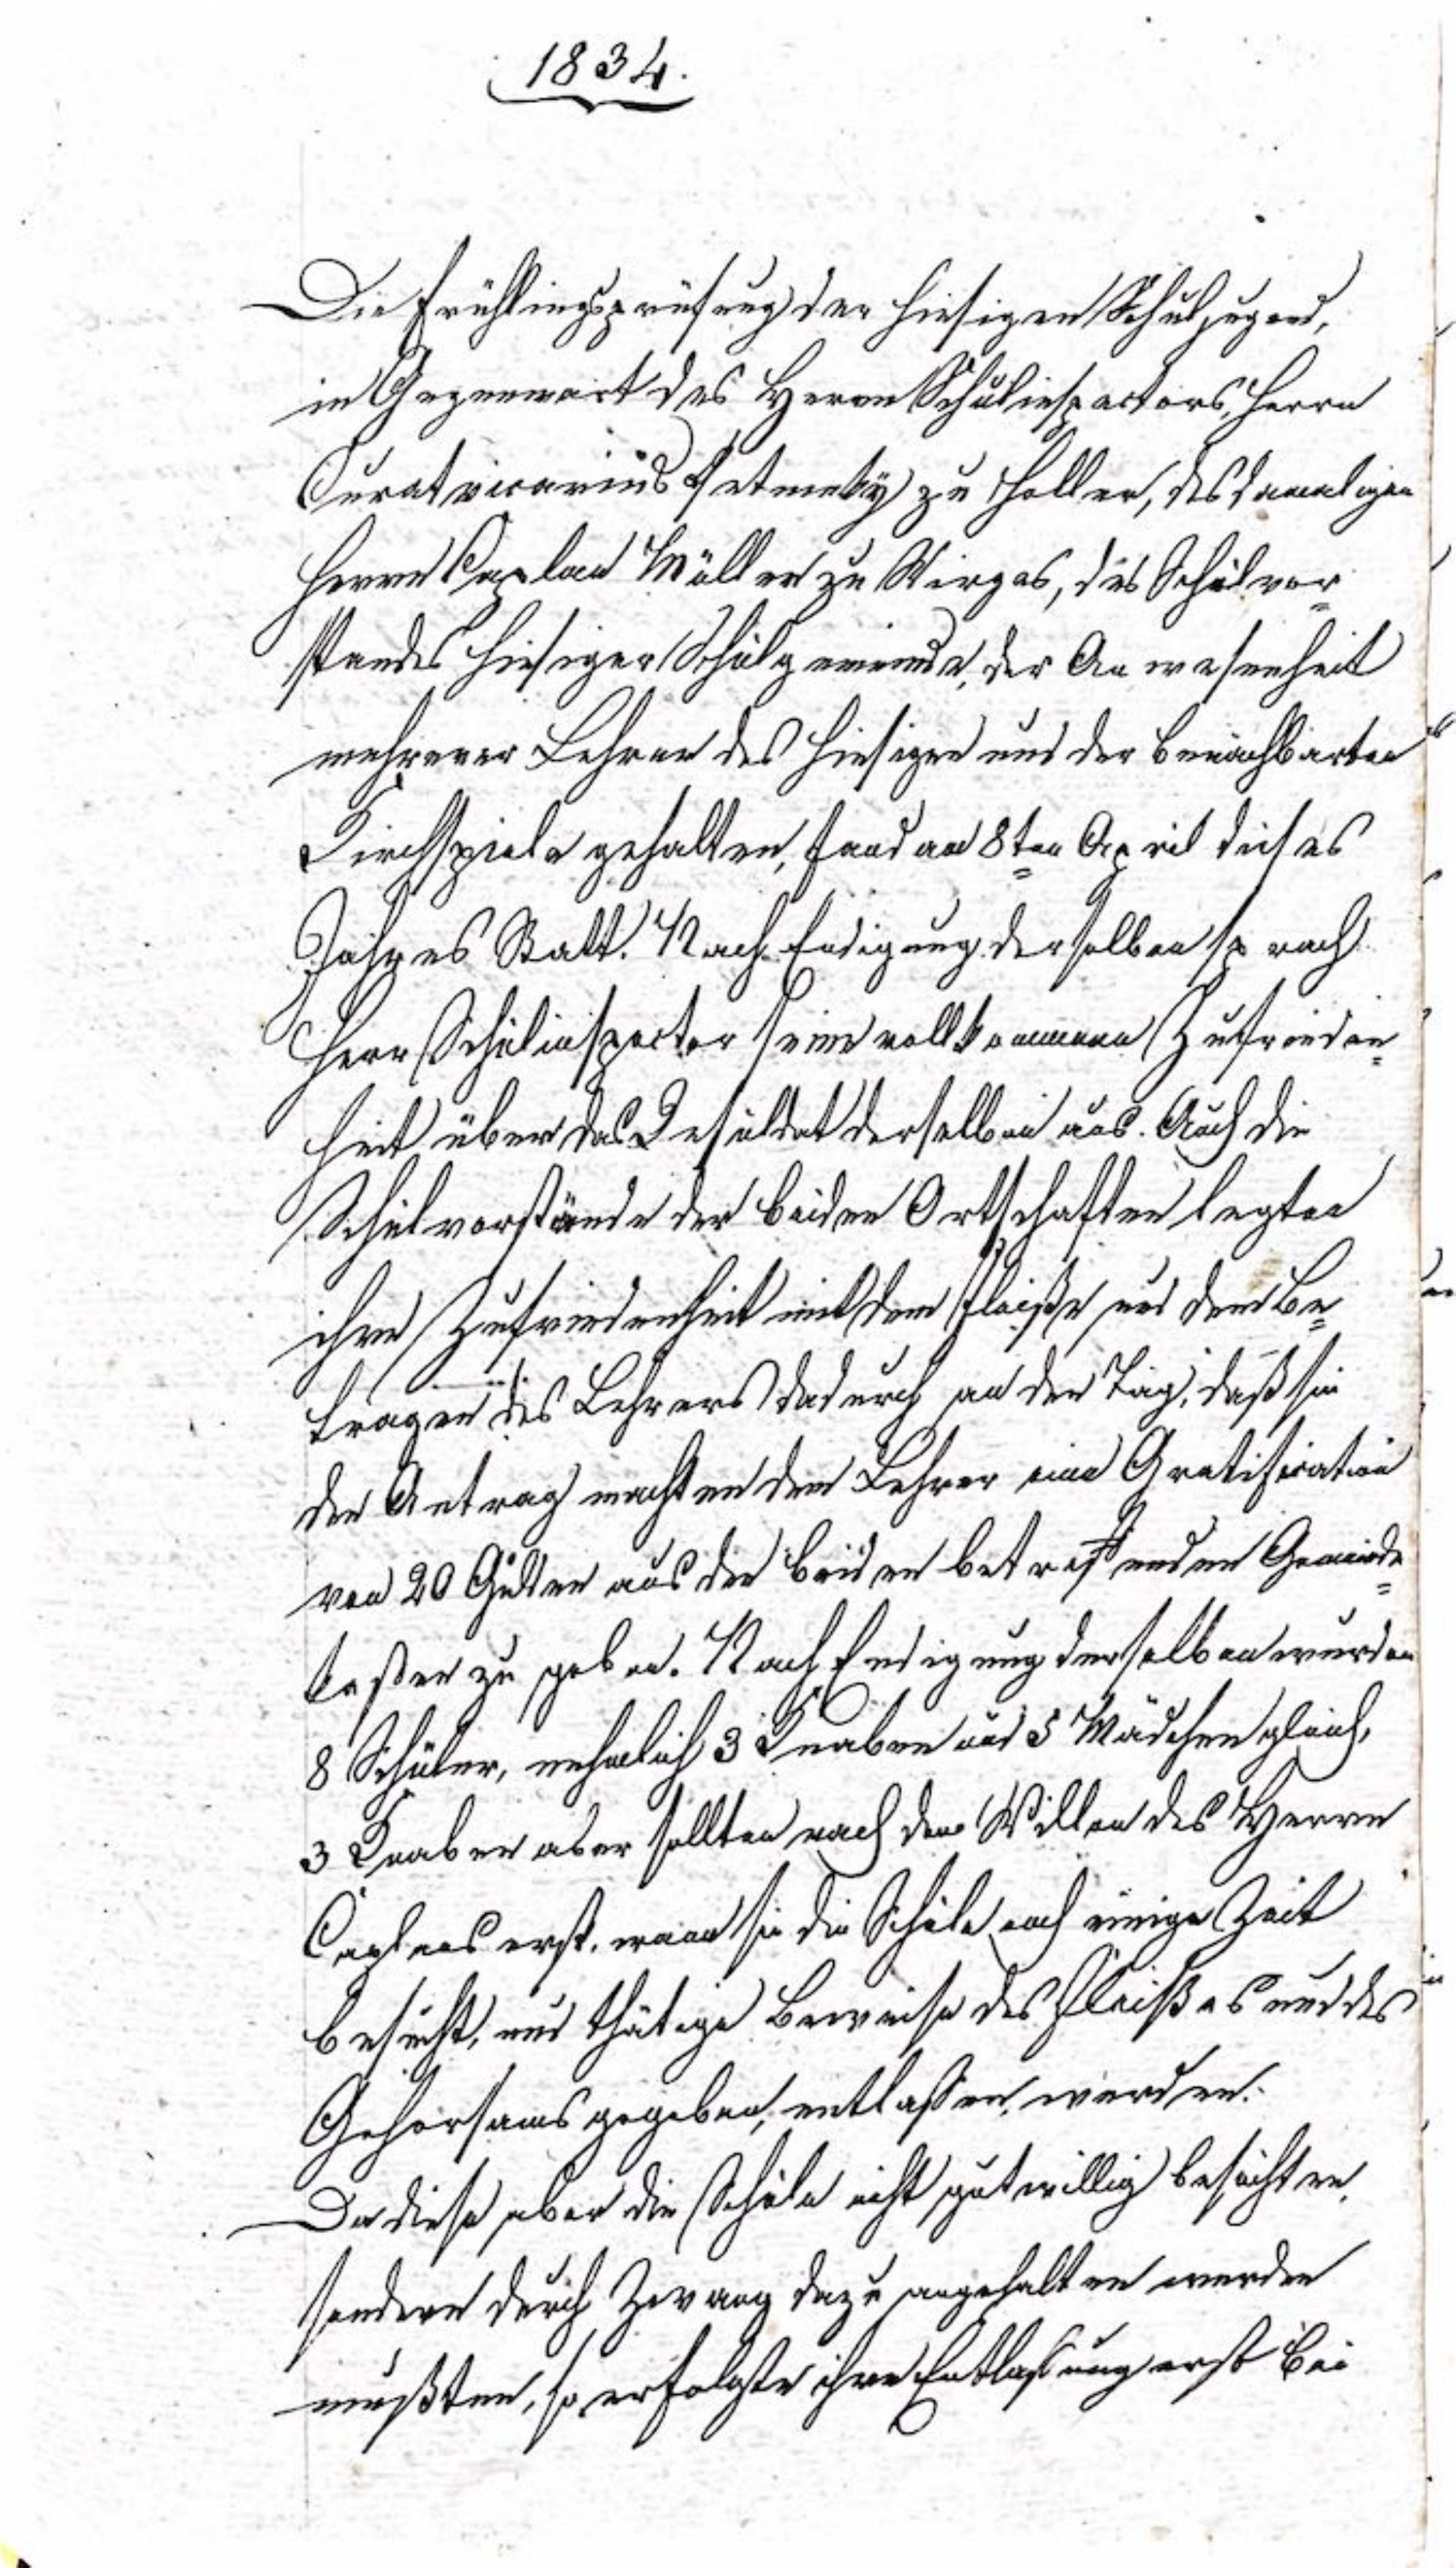 1834.
Die Frühlingsprüfung der hiesigen Schuljugend,
in Gegenwart des Herrn Schulinspectors, Herrn
Curatvicarius zu Holler, des damaligen
Herrn Caplan Müller zu Wirges, des Schulvor=
standes hiesiger Schulgemeinde, der Anwesenheit
mehrerer Lehrer des hiesigen und der benachbarten
Kirchspiele gehalten, fand am 8ten April dieses
Jahres Statt. Nach Endigung derselben sprach
Herr Schulinspector seine vollkommene Zufrieden=
heit über das Resuldat derselben aus. Auch die
Schulvorstände der beiden Ortschaften legten
ihre Zufriedenheit mit dem Fleiße und dem Be=
tragen des Lehrers dadurch an den Tag, daß sie
den Antrag machten dem Lehrer eine Gratification
von 20 Gulden aus den beiden betreffenden Gemeinde=
kaßen zu geben. Nach Endigung derselben wurden
8 Schüler, nehmlich 3 Knaben und 5 Mädchen gleich,
3 Knaben aber sollten nach dem Willen des Herrn
Caplans erst, wann sie die Schule noch einige Zeit
besucht, und thätige Beweise des Fleißes und des
Gehorsams gegeben, entlaßen werden.
Da diese aber die Schule nicht gutwillig besuchten,
sondern durch Zwang dazu angehalten werden
mußten, so erfolgte ihre Entlaßung erst bei